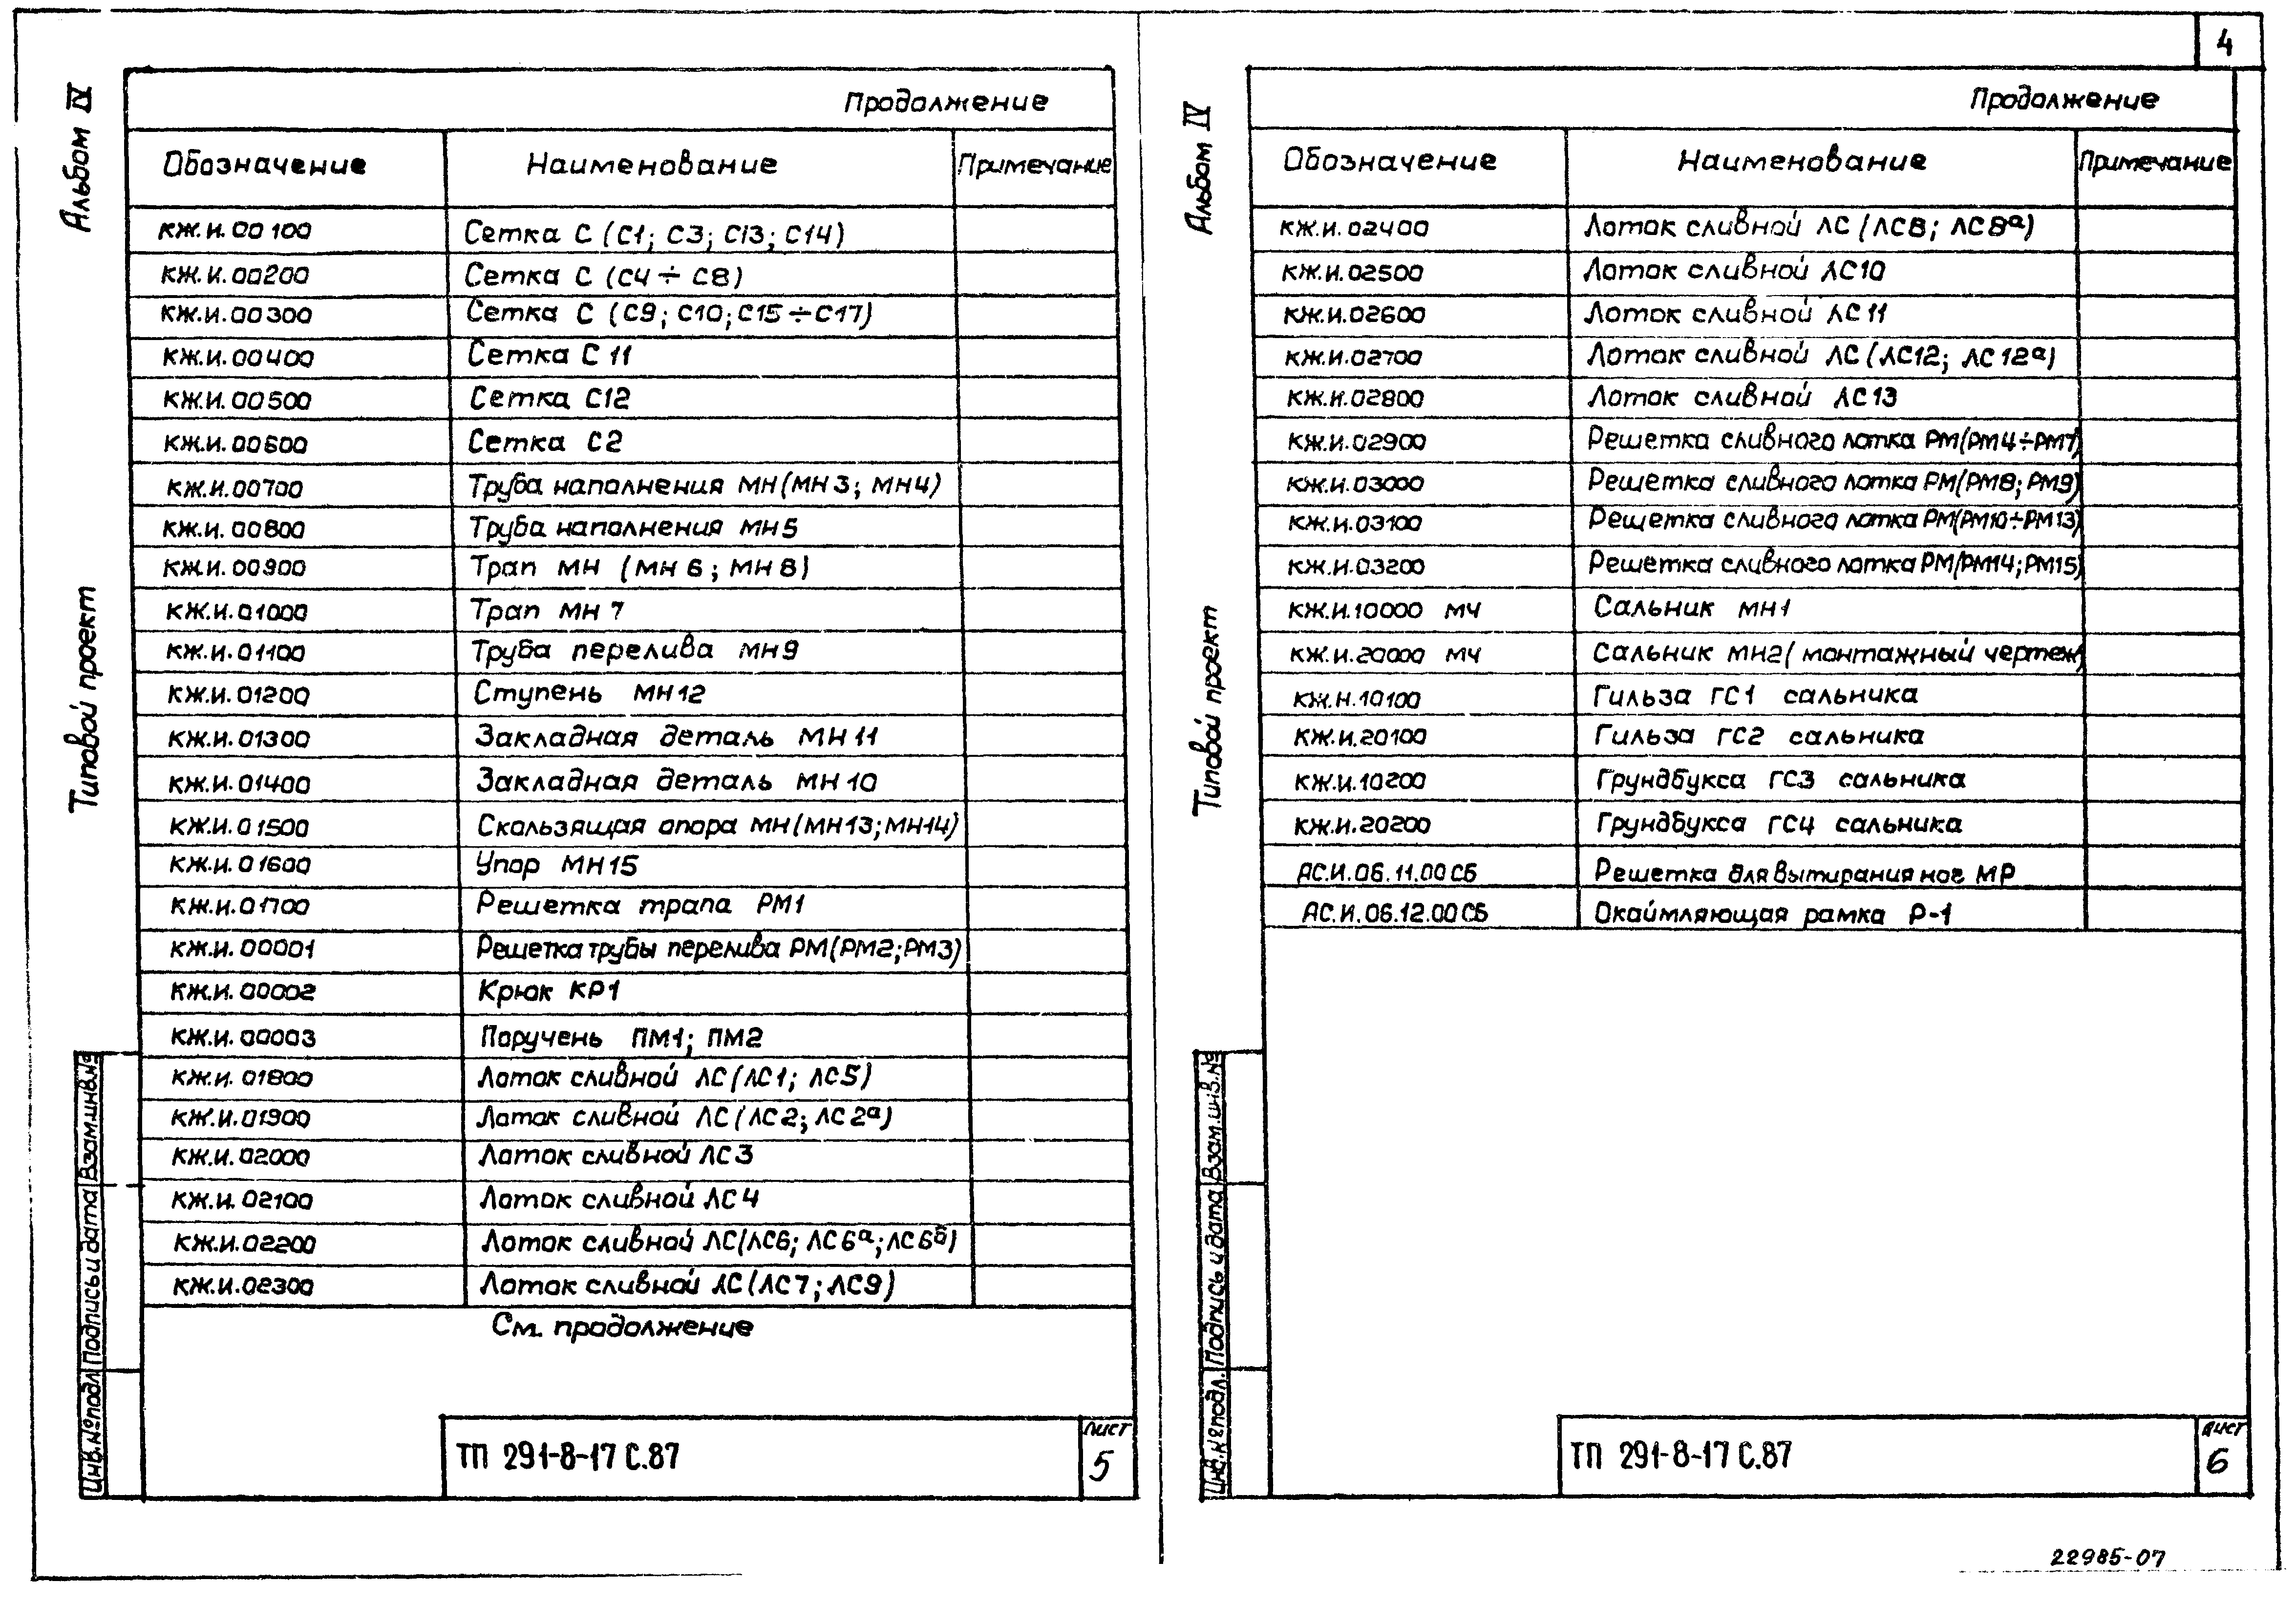 4
Альбом IV
Типовой проект
Продолжение
Обозначение Наименование Примечание
КЖ.И.00100 Сетка С (С1; С3; С13; С14)
КЖ.И.00200 Сетка С (С4 ÷ С8)
КЖ.И.00300 Сетка С (С9; С10; С15÷С17)
КЖ.И.00400 Сетка С 11
КЖ.И.00500 Сетка С12
КЖ.И.00600 Сетка С2
КЖ.И.00700 Труба наполнения МН (МН 3; МН4)
КЖ.И.00800 Труба наполнения МН5
КЖ.И.00900 Трап МН (МН 6; МН 8)
КЖ.И.01000 Трап МН 7
КЖ.И.01100 Труба перелива МН9
КЖ.И.01200 Ступень МН12
КЖ.И.01300 Закладная деталь МН 11
КЖ.И.01400 Закладная деталь МН 10
КЖ.И.01500 Скользящая опора МН (МН13; МН14)
КЖ.И.01600 Упор МН15
КЖ.И.01700 Решетка трапа РМ1
КЖ.И.00001 Решетка трубы перелива РМ (РМ2; РМ3)
КЖ.И.00002 Крюк КР1
КЖ.И.00003 Поручень ПМ1; ПМ2
КЖ.И.01800 Лоток сливной ЛС (ЛС1; ЛС5)
КЖ.И.01900 Лоток сливной ЛС (ЛС2; ЛС2ª)
КЖ.И.02000 Лоток сливной ЛС3
КЖ.И.02100 Лоток сливной ЛС 4
КЖ.И.02200 Лоток сливной ЛС (ЛС6; ЛС6ª; ЛС6б)
КЖ.И.02300 Лоток сливной ЛС (ЛС7; ЛС9)
См. продолжение
Инв.№подл Подпись и дата Взам.инв.№
ТП 291-8-17 С.87
Лист
5
Альбом IV
Типовой проект
Продолжение
Обозначение Наименование Примечание
КЖ.И.02400 Лоток сливной ЛС (ЛС8; ЛС8ª)
КЖ.И.02500 Лоток сливной ЛС10
КЖ.И.02600 Лоток сливной ЛС11
КЖ.И.02700 Лоток сливной ЛС (ЛС12; ЛС 12ª)
КЖ.И.02800 Лоток сливной ЛС13
КЖ.И.02900 Решетка сливного лотка РМ (РМ4÷РМ7)
КЖ.И.03000 Решетка сливного лотка РМ (РМ8; РМ9)
КЖ.И.03100 Решетка сливного лотка РМ (РМ10÷РМ13)
КЖ.И.03200 Решетка сливного лотка РМ (РМ14; РМ15)
КЖ.И.10000 МЧ Сальник МН1
КЖ.И.20000 МЧ Сальник МН2 (монтажный чертеж)
КЖ.Н.10100 Гильза ГС1 сальника
КЖ.И.20100 Гильза ГС2 сальника
КЖ.И.10200 Грундбукса ГС3 сальника
КЖ.И.20200 Грундбукса ГС4 сальника
АС.И.06.11.00СБ Решетка для вытирания ног МР
АС.И.06.12.00СБ Окаймляющая рамка Р-1
Инв.№подл. Подпись и дата Взам.инв.№
ТП 291-8-17 С.87
Лист
6
22985-07